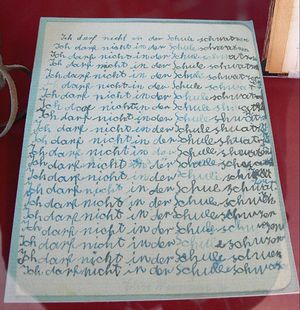 Ich darf nicht in der Schule schwatzen
Ich darf nicht in der Schule schwatzen
Ich darf nicht in der Schule schwatzen
Ich darf nicht in der Schule schwatzen
Ich darf nicht in der Schule schwatzen
Ich darf nicht in der Schule
Ich darf nicht in der Schule
Ich darf nicht in der Schule
Ich darf nicht in der Schule
Ich darf nicht in der Schule
Ich darf nicht in der Schule
Ich darf nicht in der Schule
Ich darf nicht in der Schule
Ich darf nicht in der Schule
Ich darf nicht in der Schule
Ich darf nicht in der Schule
Ich darf nicht in der Schule
Ich darf nicht in der Schule
Ich darf nicht in der Schule
Ich darf nicht in der Schule
Ich darf nicht in der Schule